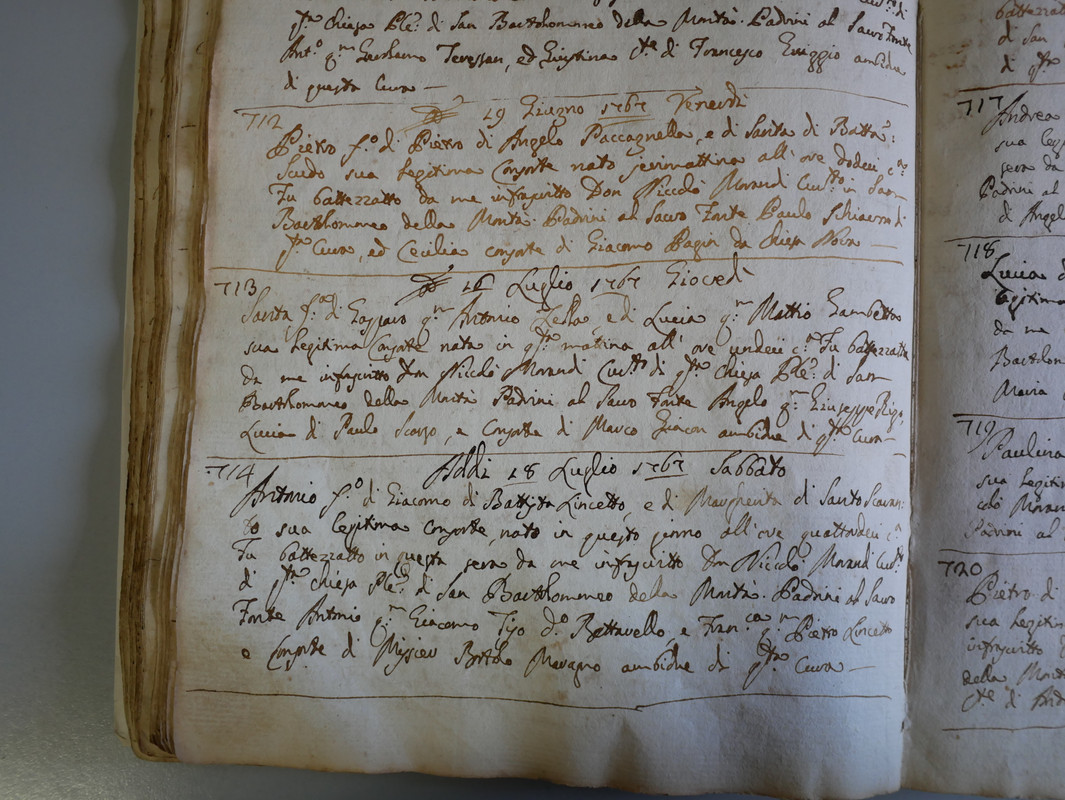 qta Chiesa Ple: di San Bartholommeo della Montà. Padrini al Sacro Fonte
Anto qm Gerolamo Teressan, ed Giustina cte di Francesco ambidue
di questa Cura —
712
19 Giugno 1767 Venerdì
Pietro fo di Pietro di Angelo Paccagnella, e di Santa di Batta:
Scudo sua legitima Consorte nato jerimattina all' ore dodeci ca
Fu battezzatto da me infrascritto Don Niccolò Morandi Curto: in San
Bartholommeo della Montà. Padrini al Sacro Fonte Paulo Schiavon di
qta Cura, ed Cecilia consorte di Giacomo Pagin da Chiesa Nova —
713
16 Luglio 1767 Giovedì
Santa fa di Gasparo qm Antonio Zella e di Lucia qm Mattio Gambetta
sua legitima Consorte nata in qta mattina all' ore undeci ca Fu battezzatta
da me infrascritto Dn Niccolò Morandi Curto di qta Chiesa Ple: di San
Bartholommeo della Montà Padrini al Sacro Fonte Angelo qm Giuseppe Rigo,
Lucia di Paulo Scarso, e Consorte di Marco Giacon ambidue di qta Cura —
714
Addi 18 Luglio 1767 Sabbato
Antonio fo di Giacomo di Battista Lincetto, e di Margherita di Santo Scavaz:
to sua legitima consorte, nato in questo giorno all' ore quattordeci ca
Fu battezzatto in questa sera da me infrascritto Dn Niccolò Morandi Curto
di qta Chiesa Ple: di San Bartholommeo della Montà. Padrini al Sacro
Fonte Antonio qm Giacomo Tiso do Bettavello, e Franca qm Pietro Lincetto
e Consorte di Missier Bortolo Maragno ambidue di qta Cura —
battezzat
di San
di qta
717
Andrea
sua leg
sera da
Padrini al
di Angel
718
Lucia d
legitima
da me
Bartolom
Maria
719
Paulina
sua legitim
colò Moran
Padrini al
720
Pietro di
sua legitim
infrascritto
della Mont
cte di And